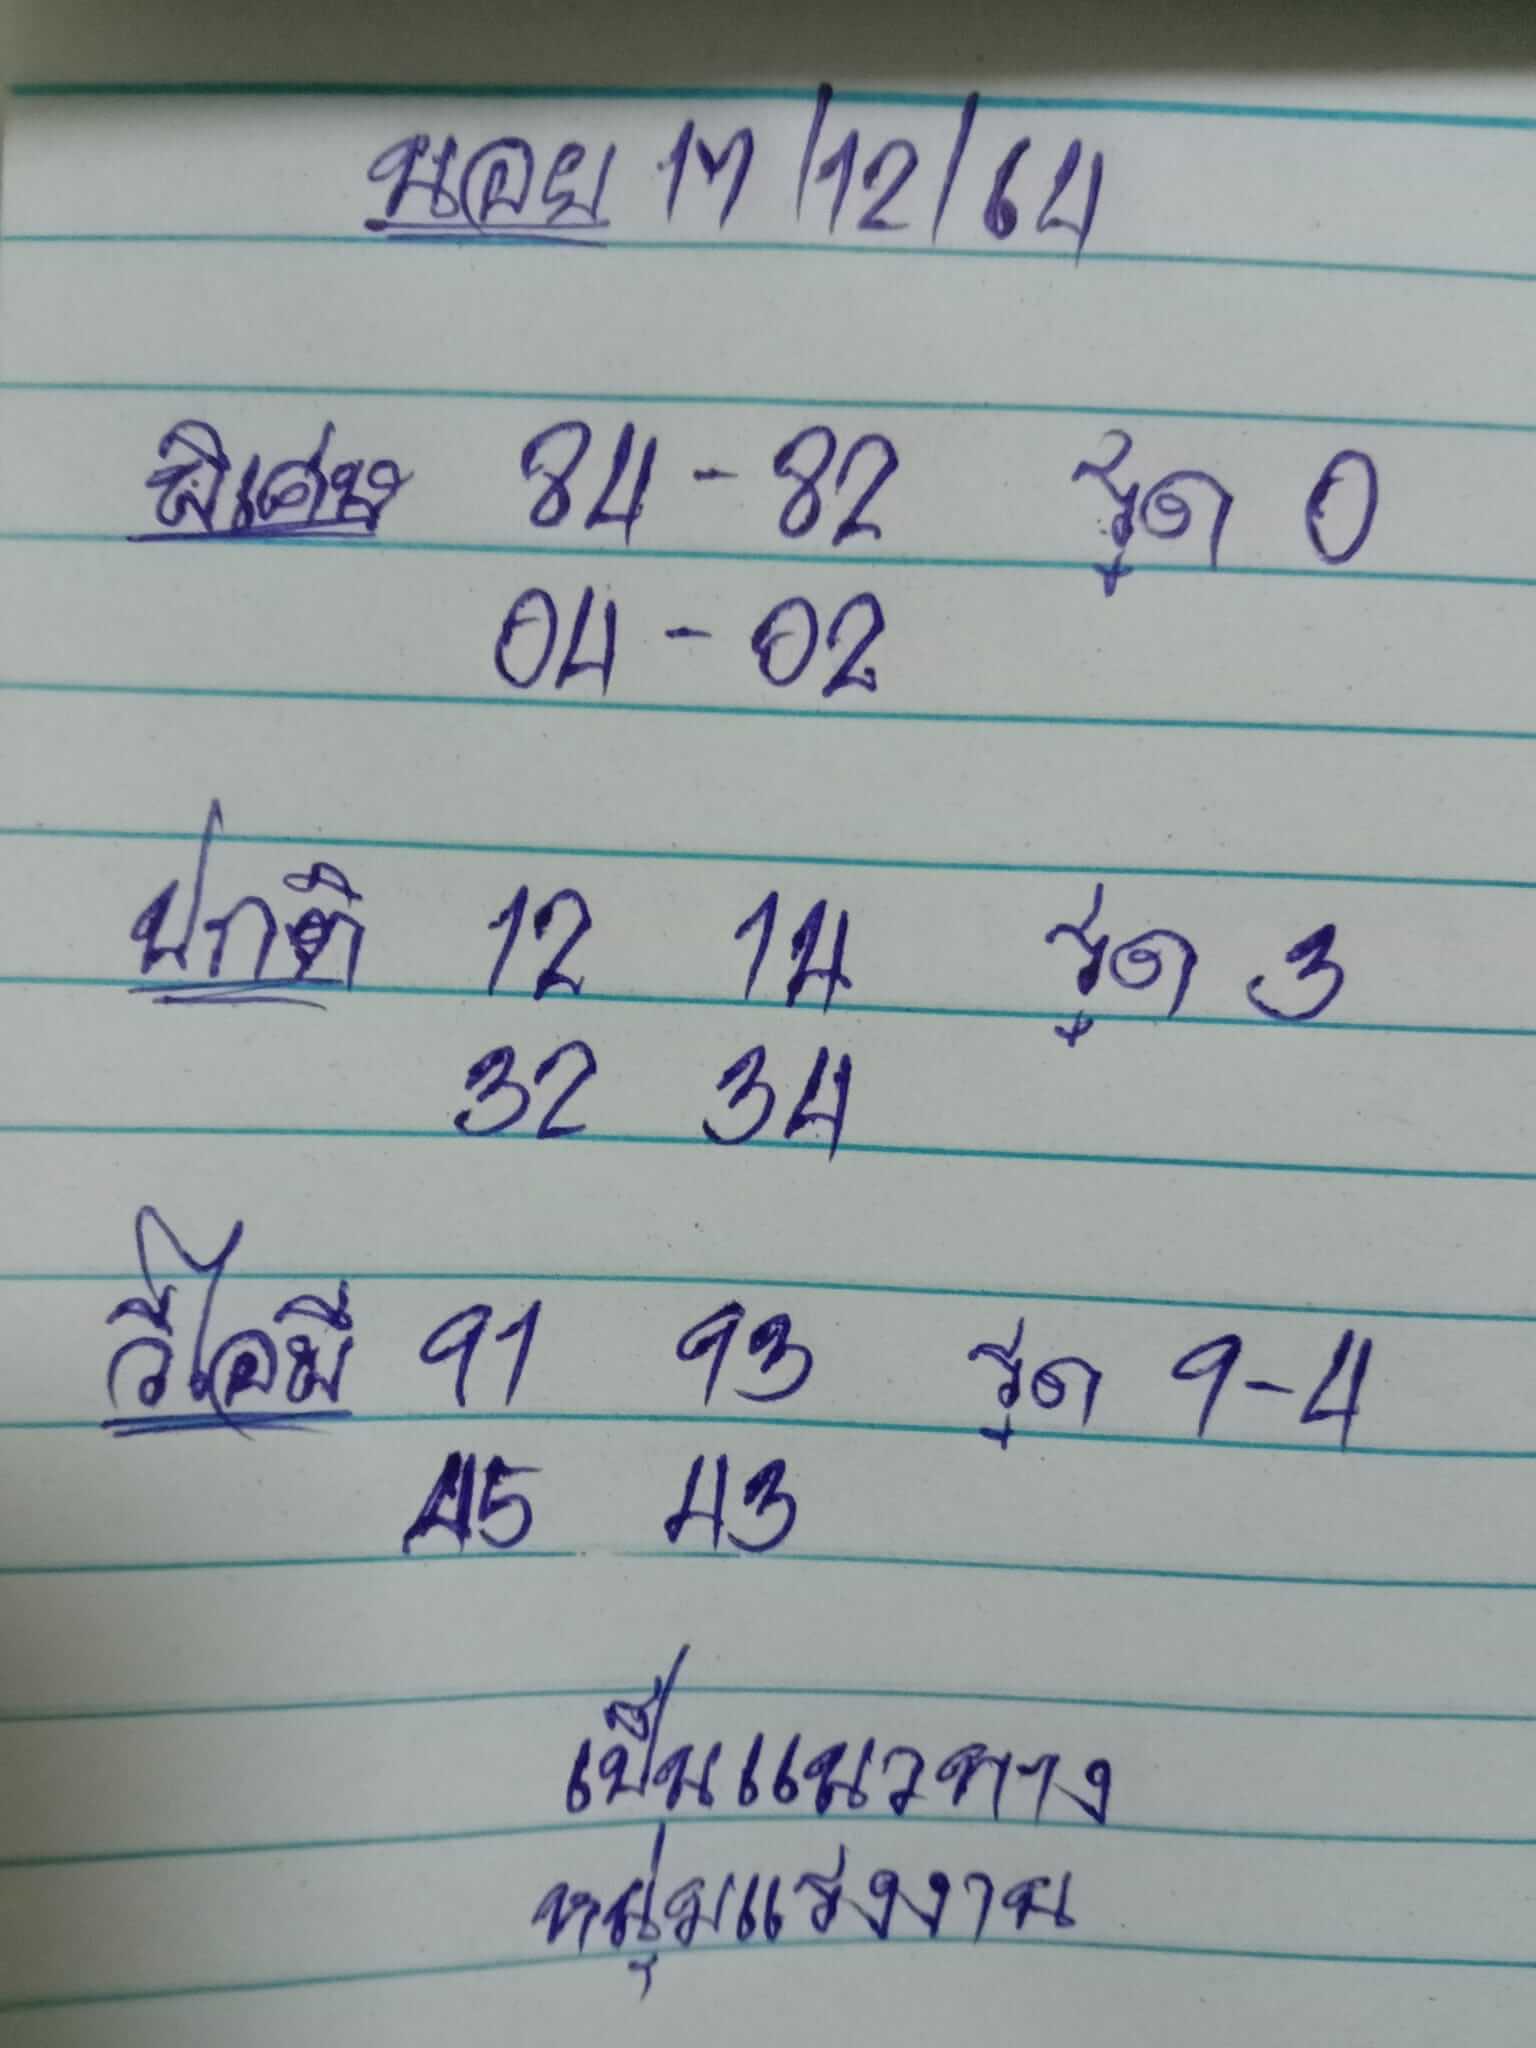 นอย 17/12/64
พิเศษ 84-82 รูด 0
04-02
ปกติ 12 14 รูด 3
32 34
วีไอพี 91 93 รูด 9-4
45 43
เป็นแนวทาง
หนุ่มแรงงาน